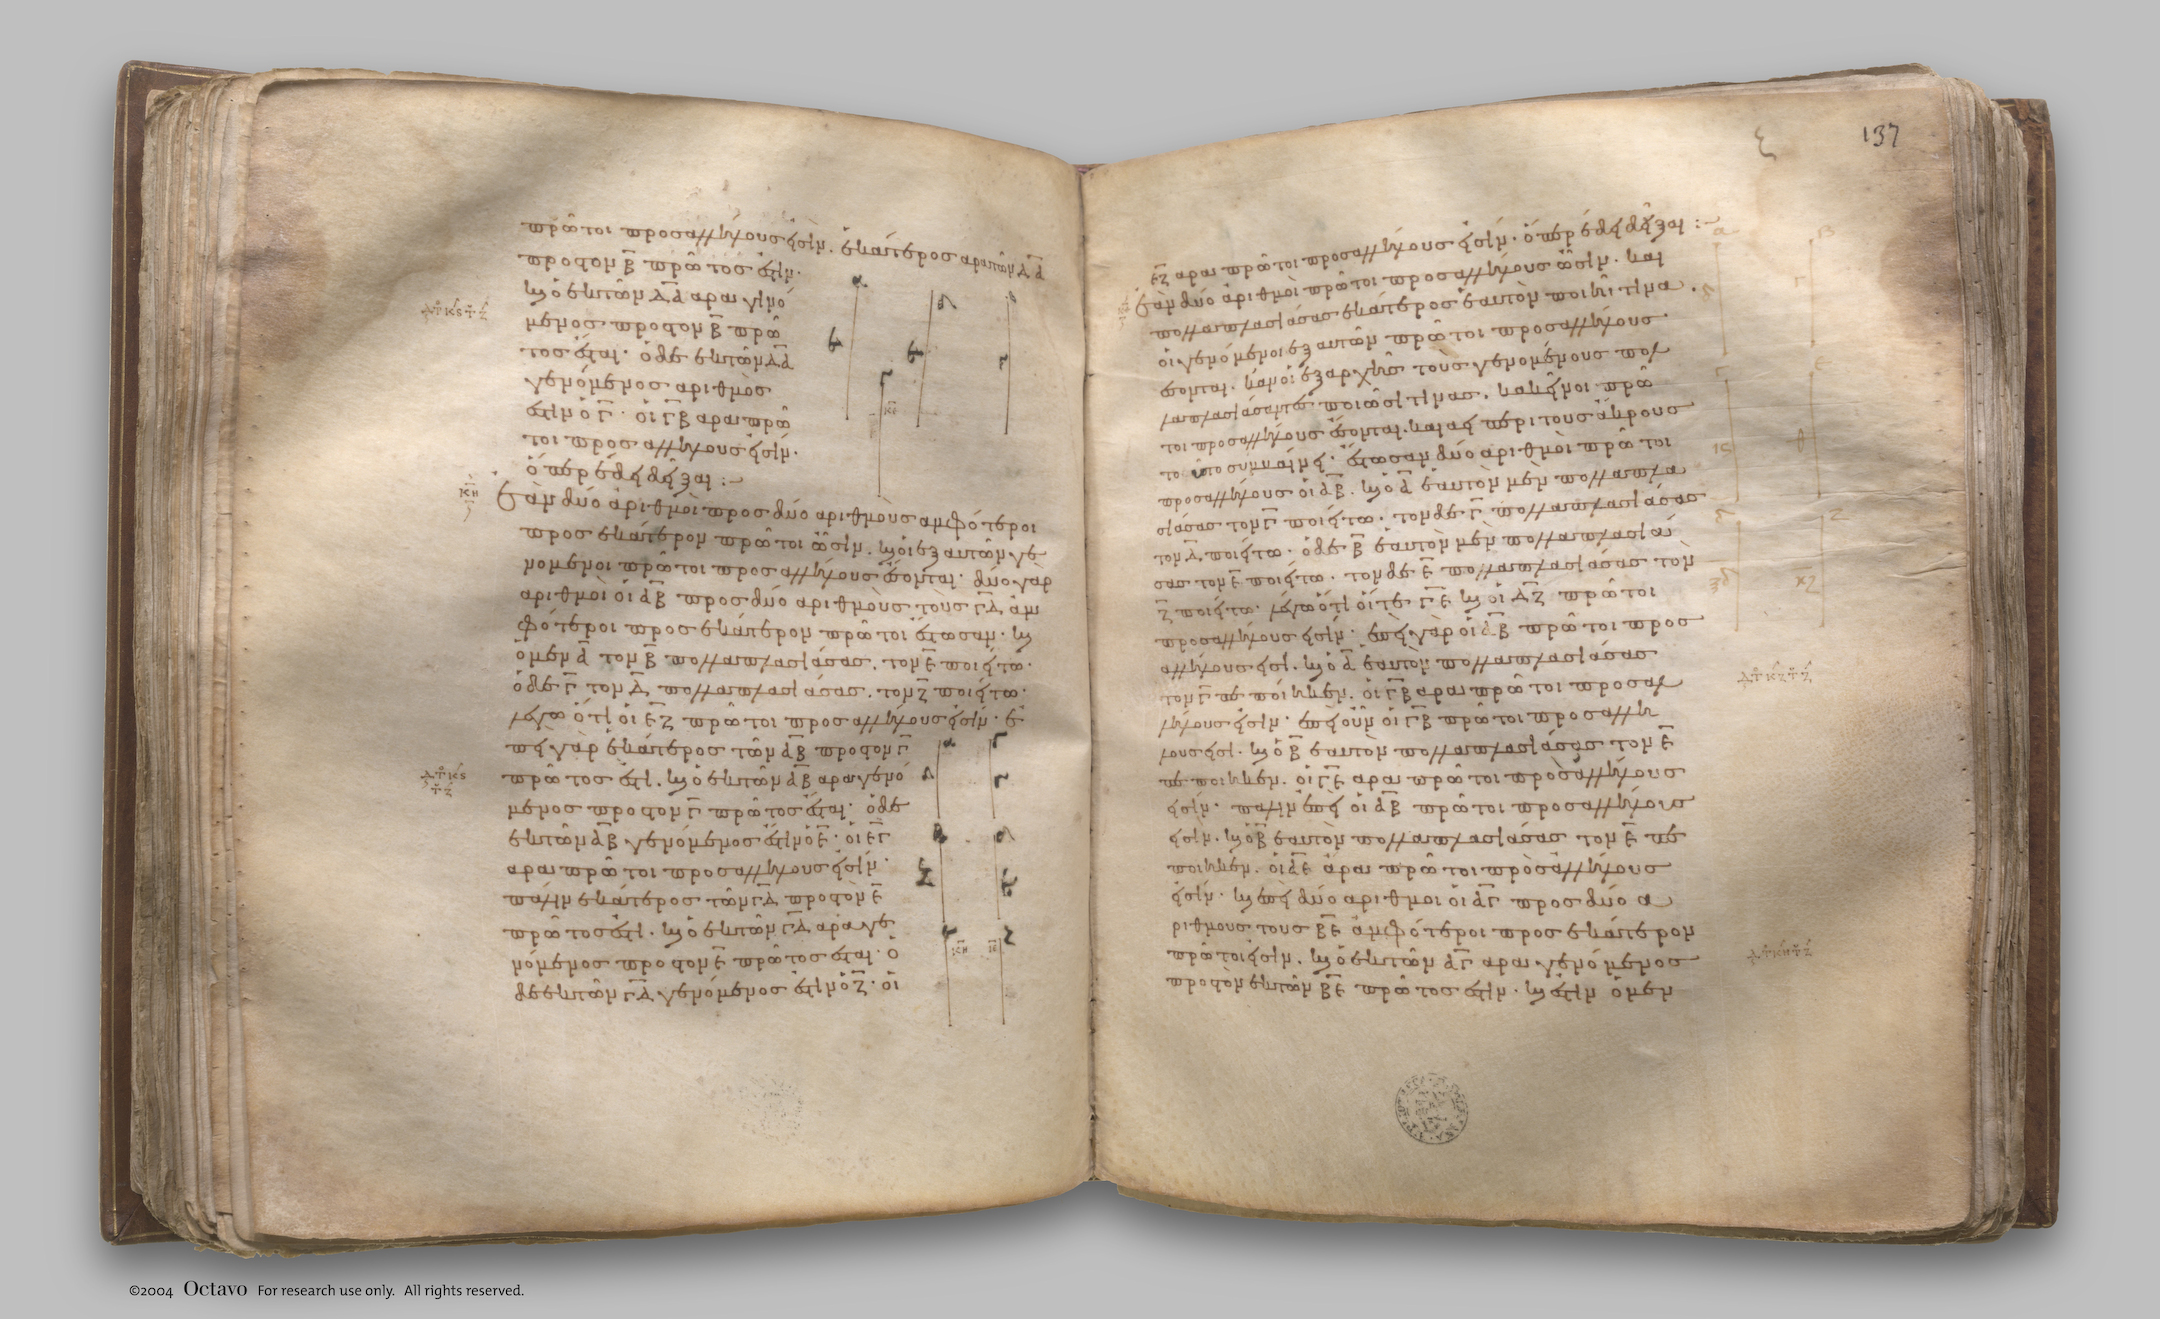 πρῶτοι πρὸσ ἀλλήλουσ εἰσίν. ἑκάτεροσ ἄρα τῶν Δ Α
πρὸσ τὸν Β πρῶτόσ ἐστιν.
καὶ ὁ ἐκ τῶν Δ Α ἄρα γινό
μενοσ πρὸσ τὸν Β πρῶ
τοσ ἔσται. ὁ δὲ ἐκ τῶν Δ Α
γενόμενοσ ἀριθμὸσ
ἐστὶν ὁ Γ. οἱ Γ Β ἄρα πρῶ
τοι πρὸσ ἀλλήλουσ εἰσίν.
ὅπερ ἔδει δεῖξαι :~
κη
Ἐὰν δύο ἀριθμοὶ πρὸσ δύο ἀριθμοὺσ ἀμφότεροι
πρὸσ ἑκάτερον πρῶτοι ὦσιν. καὶ οἱ ἐξ αὐτῶν γε
νόμενοι πρῶτοι πρὸσ ἀλλήλουσ ἔσονται. δύο γὰρ
ἀριθμοὶ οἱ Α Β πρὸσ δύο ἀριθμοὺσ τοὺσ Γ Δ ἀμ
φότεροι πρὸσ ἑκάτερον πρῶτοι ἔστωσαν. καὶ
ὁ μὲν Α τὸν Β πολλαπλασιάσασ. τὸν Ε ποιείτω.
ὁ δὲ Γ τὸν Δ πολλαπλασιάσασ. τὸν Ζ ποιείτω.
λέγω ὅτι οἱ Ε Ζ πρῶτοι πρὸσ ἀλλήλουσ εἰσίν. ἐ
πεὶ γὰρ ἑκάτεροσ τῶν Α Β πρὸσ τὸν Γ
πρῶτόσ ἐστι. καὶ ὁ ἐκ τῶν Α Β ἄρα γενό
μενοσ πρὸσ τὸν Γ πρῶτοσ ἔσται. ὁ δὲ
ἐκ τῶν Α Β γενόμενοσ ἐστὶν ὁ Ε. οἱ Ε Γ
ἄρα πρῶτοι πρὸσ ἀλλήλουσ εἰσίν.
πάλιν ἑκάτεροσ τῶν Γ Δ πρὸσ τὸν Ε
πρῶτόσ ἐστι. καὶ ὁ ἐκ τῶν Γ Δ ἄρα γε
νόμενοσ πρὸσ τὸν Ε πρῶτοσ ἔσται. ὁ
δὲ ἐκ τῶν Γ Δ γενόμενοσ ἐστὶν ὁ Ζ. οἱ
137
Ε Ζ ἄρα πρῶτοι πρὸσ ἀλλήλουσ εἰσίν. ὅπερ ἔδει δεῖξαι :~
Ἐὰν δύο ἀριθμοὶ πρῶτοι πρὸσ ἀλλήλουσ ὦσιν. καὶ
πολλαπλασιάσασ ἑκάτεροσ ἑαυτὸν ποιῇ τινα.
οἱ γενόμενοι ἐξ αὐτῶν πρῶτοι πρὸσ ἀλλήλουσ
ἔσονται. κἂν οἱ ἐξ ἀρχῆσ τοὺσ γενομένουσ πολ
λαπλασιάσαντεσ ποιῶσί τινασ. κἀκεῖνοι πρῶ
τοι πρὸσ ἀλλήλουσ ἔσονται. καὶ ἀεὶ περὶ τοὺσ ἄκρουσ
τοῦτο συμβαίνει. ἔστωσαν δύο ἀριθμοὶ πρῶτοι
πρὸσ ἀλλήλουσ οἱ Α Β. καὶ ὁ Α ἑαυτὸν μὲν πολλαπλα
σιάσασ τὸν Γ ποιείτω. τὸν δὲ Γ πολλαπλασιάσασ
τὸν Δ ποιείτω. ὁ δὲ Β ἑαυτὸν μὲν πολλαπλασιά
σασ τὸν Ε ποιείτω. τὸν δὲ Ε πολλαπλασιάσασ τὸν
Ζ ποιείτω. λέγω ὅτι οἵ τε Γ Ε καὶ οἱ Δ Ζ πρῶτοι
πρὸσ ἀλλήλουσ εἰσίν. ἐπεὶ γὰρ οἱ Α Β πρῶτοι πρὸσ
ἀλλήλουσ εἰσί. καὶ ὁ Α ἑαυτὸν πολλαπλασιάσασ
τὸν Γ πεποίηκεν. οἱ Γ Β ἄρα πρῶτοι πρὸσ ἀλ
λήλουσ εἰσίν. ἐπεὶ οὖν οἱ Γ Β πρῶτοι πρὸσ ἀλλή
λουσ εἰσί. καὶ ὁ Β ἑαυτὸν πολλαπλασιάσασ τὸν Ε
πεποίηκεν. οἱ Γ Ε ἄρα πρῶτοι πρὸσ ἀλλήλουσ
εἰσίν. πάλιν ἐπεὶ οἱ Α Β πρῶτοι πρὸσ ἀλλήλουσ
εἰσίν. καὶ ὁ Β ἑαυτὸν πολλαπλασιάσασ τὸν Ε πε
ποίηκεν. οἱ Α Ε ἄρα πρῶτοι πρὸσ ἀλλήλουσ
εἰσίν. καὶ ἐπεὶ δύο ἀριθμοὶ οἱ Α Γ πρὸσ δύο ἀ
ριθμοὺσ τοὺσ Β Ε ἀμφότεροι πρὸσ ἑκάτερον
πρῶτοί εἰσιν. καὶ ὁ ἐκ τῶν Α Γ ἄρα γενόμενοσ
πρὸσ τὸν ἐκ τῶν Β Ε πρῶτόσ ἐστιν. καὶ ἐστὶν ὁ μὲν
©2004 Octavo For research use only. All rights reserved.